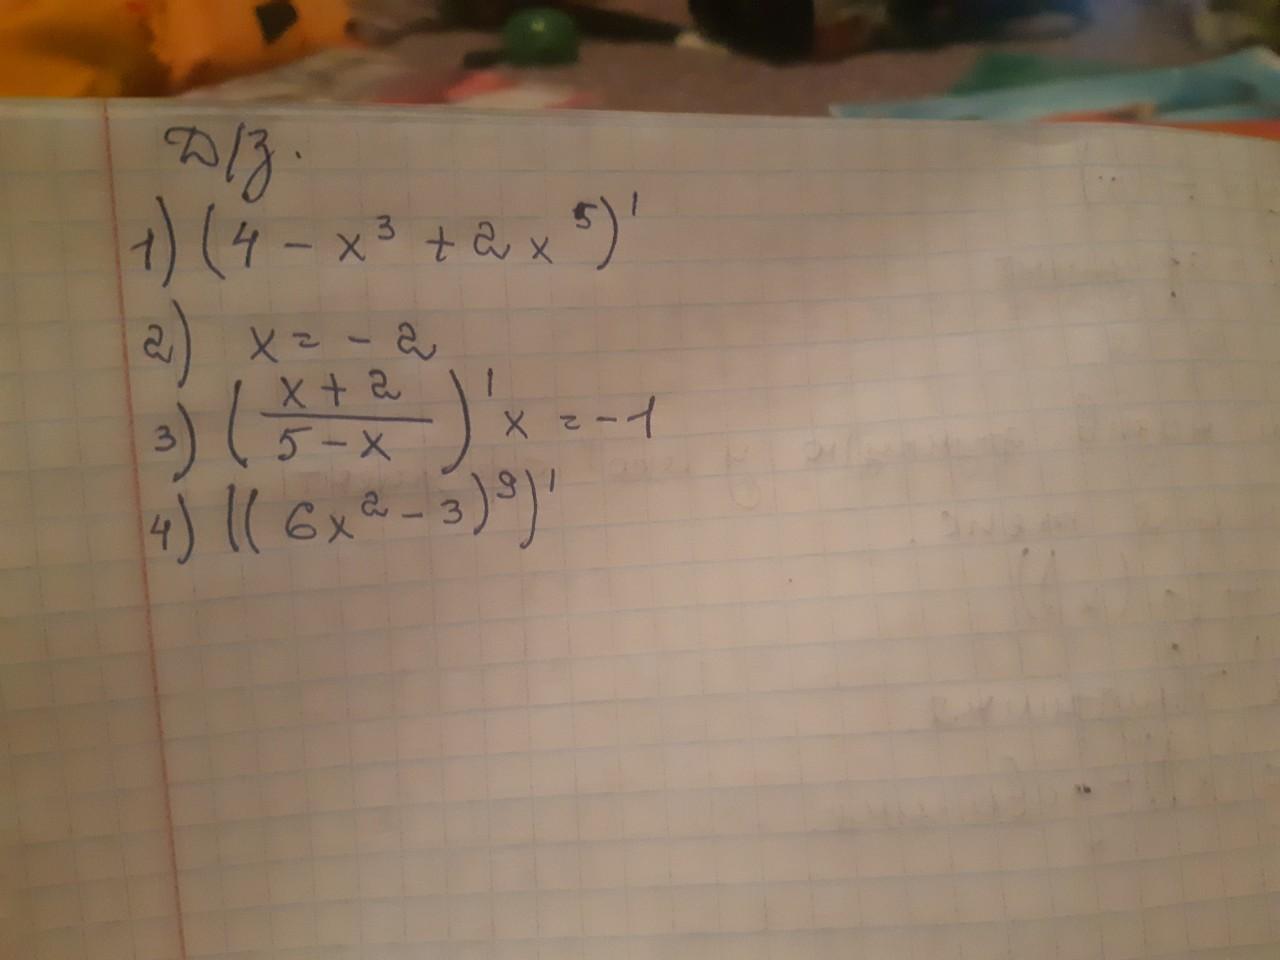 Д/з.
1) (4 - x³ + 2x⁵)'
2) x = - 2
3) (x + 2 / 5 - x)' x = -1
4) ((6x² - 3)⁹)'